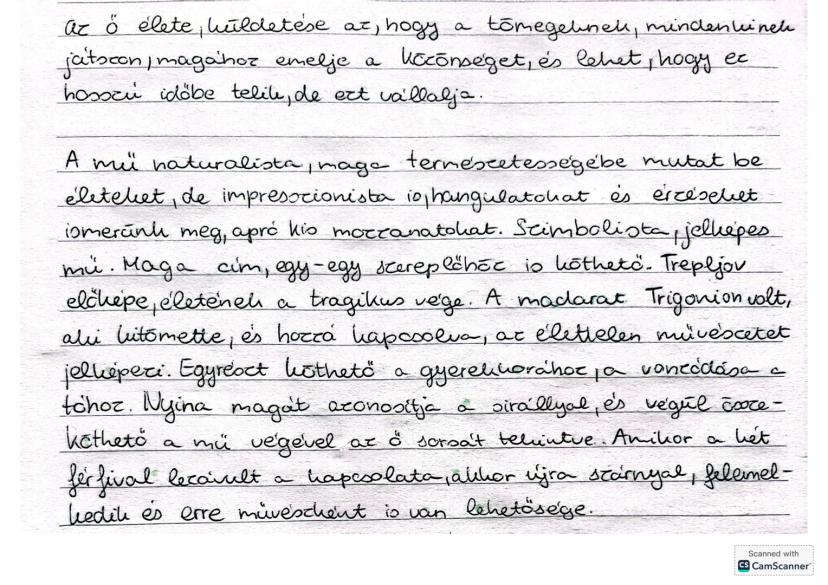 az ő élete, küldetése az, hogy a tömegeknek, mindenkinek
játszon, magához emelje a közönséget, és lehet, hogy ez
hosszú időbe telik, de ezt vállalja.
A mű naturalista, maga természetességébe mutat be
életeket, de impresszionista is, hangulatokat és érzéseket
ismerünk meg, apró kis mozzanatokat. Szimbolista, jelképes
mű. Maga cím, egy-egy szereplőhöz is köthető. Trepljov
előképe, életének a tragikus vége. A madarat Trigorion volt,
aki kitömette, és hozzá kapcsolva, az élettelen művészetet
jelképezi. Egyrészt köthető a gyerekkorához, a vonzódása a
tóhoz. Nyina magát azonosítja a sirállyal, és végül össze-
köthető a mű végével az ő sorsát tekintve. Amikor a két
férfival lezárult a kapcsolata, akkor újra szárnyal, felemel-
kedik és erre művészként is van lehetősége.
Scanned with
CS CamScanner